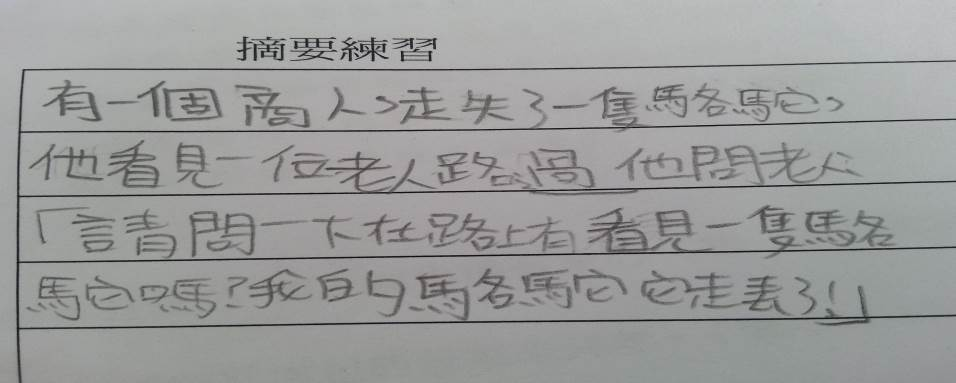 摘要練習
有一個商人,走失了一隻駱駝,
他看見一位老人路過他問老人
「請問一下在路上有看見一隻駱
駝嗎?我的駱駝它走丟了!」